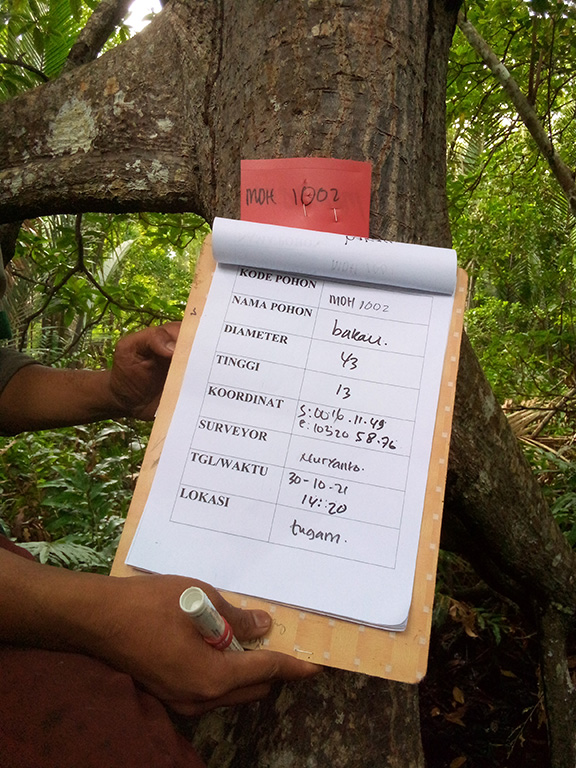 MOH 1002
KODE POHON MOH 1002
NAMA POHON bakau.
DIAMETER 43
TINGGI 13
KOORDINAT S:0016.11.49
e:10320 58.76
SURVEYOR Nuryanto.
TGL/WAKTU 30-10-21
14:20
LOKASI tugam.